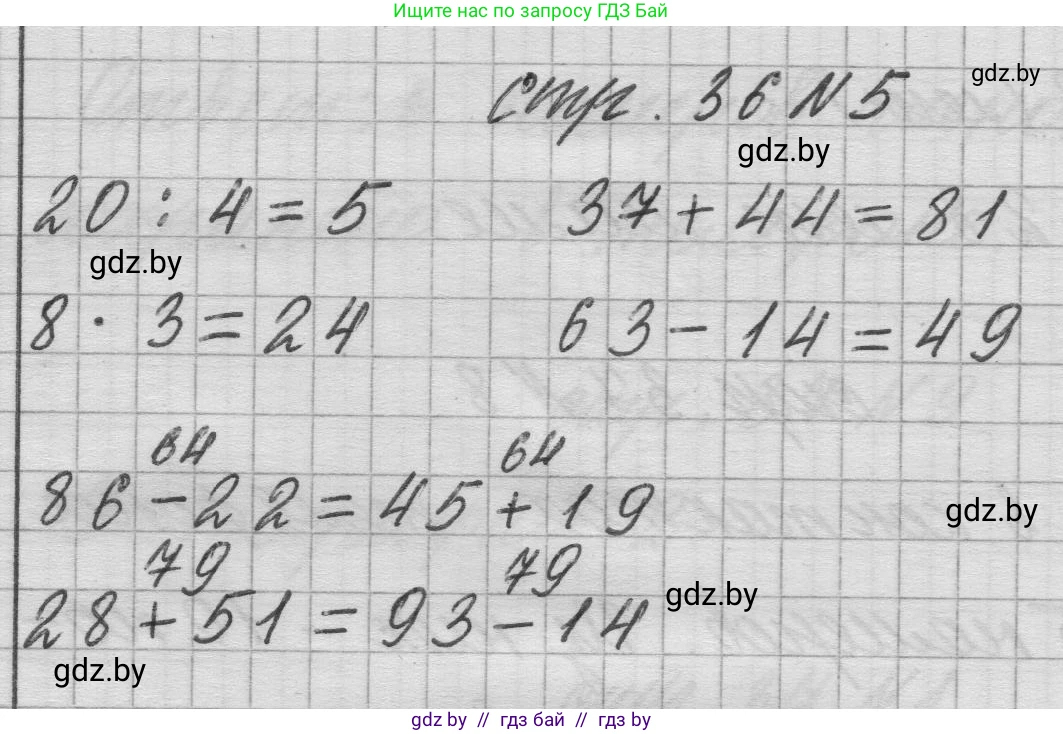 Ищите нас по запросу ГДЗ Бай
gdz.by
стр. 36 N 5
gdz.by
20 : 4 = 5 37 + 44 = 81
gdz.by
8 · 3 = 24 63 - 14 = 49
64 64
86 - 22 = 45 + 19
gdz.by
79 79
28 + 51 = 93 - 14
gdz.by
gdz.by
gdz.by // гдз бай // гдз by